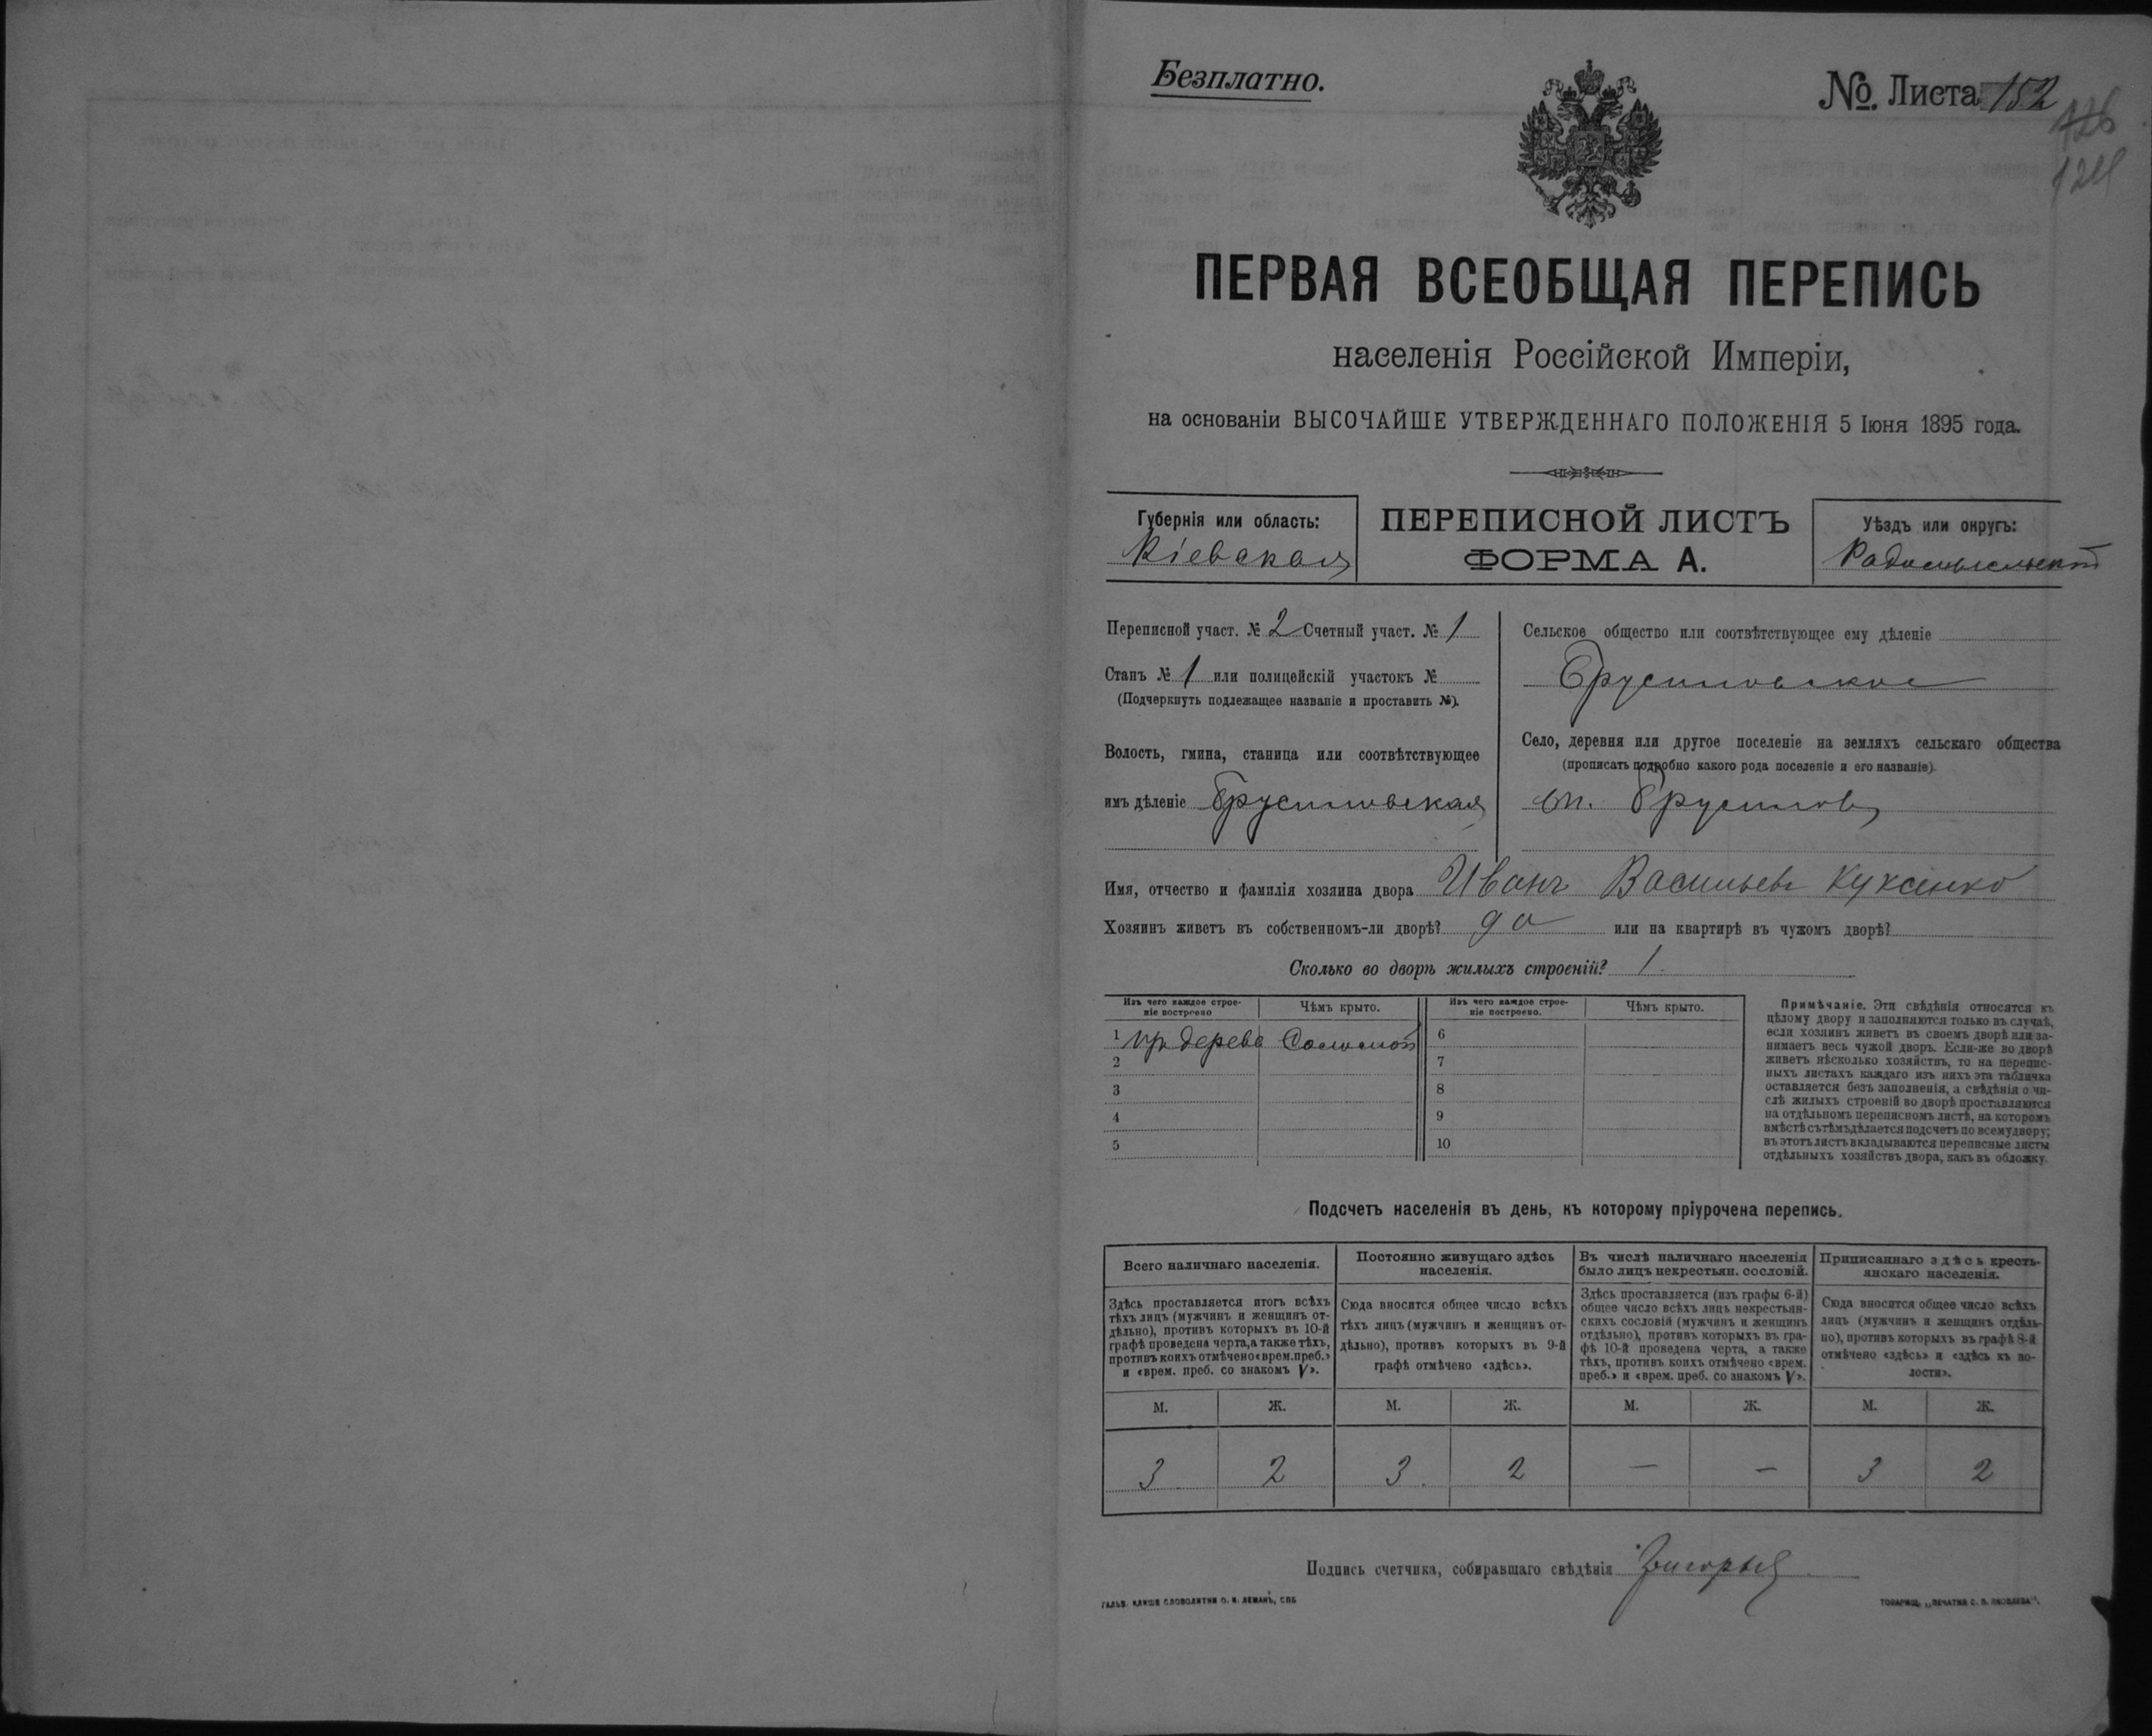 Безплатно.
№ Листа 152
126
124
ПЕРВАЯ ВСЕОБЩАЯ ПЕРЕПИСЬ
населенія Россійской Имперіи,
на основаніи ВЫСОЧАЙШЕ УТВЕРЖДЕННАГО ПОЛОЖЕНІЯ 5 Іюня 1895 года.
Губернія или область:
Кіевская
ПЕРЕПИСНОЙ ЛИСТЪ
ФОРМА А.
Уѣздъ или округъ:
Радомысльскій
Переписной участ. № 2 Счетный участ. № 1
Станъ № 1 или полицейскій участокъ №
(Подчеркнуть подлежащее названіе и проставить №).
Волость, гмина, станица или соотвѣтствующее
имъ дѣленіе Брусиловская
Сельское общество или соотвѣтствующее ему дѣленіе
Брусиловское
Село, деревня или другое поселеніе на земляхъ сельскаго общества
(прописать подробно какого рода поселеніе и его названіе)
м. Брусиловъ
Имя, отчество и фамилія хозяина двора Иванъ Васильевъ Куксенко
Хозяинъ живетъ въ собственномъ-ли дворѣ? да или на квартирѣ въ чужомъ дворѣ?
Сколько во дворѣ жилыхъ строеній? 1.
Изъ чего каждое строе-
ніе построено
Чѣмъ крыто.
Изъ чего каждое строе-
ніе построено.
Чѣмъ крыто.
1 изъ дерева Соломой
2
3
4
5
6
7
8
9
10
Примѣчаніе. Эти свѣдѣнія относятся къ
цѣлому двору и заполняются только въ случаѣ,
если хозяинъ живетъ въ своемъ дворѣ или за-
нимаетъ весь чужой дворъ. Если-же во дворѣ
живетъ нѣсколько хозяйствъ, то на перепис-
ныхъ листахъ каждаго изъ нихъ эта табличка
оставляется безъ заполненія, а свѣдѣнія о чи-
слѣ жилыхъ строеній во дворѣ проставляются
на отдѣльномъ переписномъ листѣ, на которомъ
вмѣстѣ съ тѣмъ дѣлается подсчетъ по всему двору;
въ этотъ листъ вкладываются переписные листы
отдѣльныхъ хозяйствъ двора, какъ въ обложку.
Подсчетъ населенія въ день, къ которому пріурочена перепись.
Всего наличнаго населенія.
Здѣсь проставляется итогъ всѣхъ
тѣхъ лицъ (мужчинъ и женщинъ от-
дѣльно), противъ которыхъ въ 10-й
графѣ проведена черта, а также тѣхъ,
противъ коихъ отмѣчено «врем. преб.»
и «врем. преб. со знакомъ V».
Постоянно живущаго здѣсь
населенія.
Сюда вносится общее число всѣхъ
тѣхъ лицъ (мужчинъ и женщинъ от-
дѣльно), противъ которыхъ въ 9-й
графѣ отмѣчено «здѣсь».
Въ числѣ наличнаго населенія
было лицъ некрестьян. сословій.
Здѣсь проставляется (изъ графы 6-й)
общее число всѣхъ лицъ некрестьян-
скихъ сословій (мужчинъ и женщинъ
отдѣльно), противъ которыхъ въ гра-
фѣ 10-й проведена черта, а также
тѣхъ, противъ коихъ отмѣчено «врем.
преб.» и «врем. преб. со знакомъ V».
Приписаннаго здѣсь кресть-
янскаго населенія.
Сюда вносится общее число всѣхъ
лицъ (мужчинъ и женщинъ отдѣль-
но), противъ которыхъ въ графѣ 8-й
отмѣчено «здѣсь» и «здѣсь къ во-
лости».
М. Ж. М. Ж. М. Ж. М. Ж.
3 2 3. 2 — — 3 2
Подпись счетчика, собиравшаго свѣдѣнія
ГАЛЬВ. КЛИШЕ СЛОВОЛИТНИ О. И. ЛЕМАНЪ, СПБ.
ТОВАРИЩ. „ПЕЧАТНЯ С. П. ЯКОВЛЕВА“.